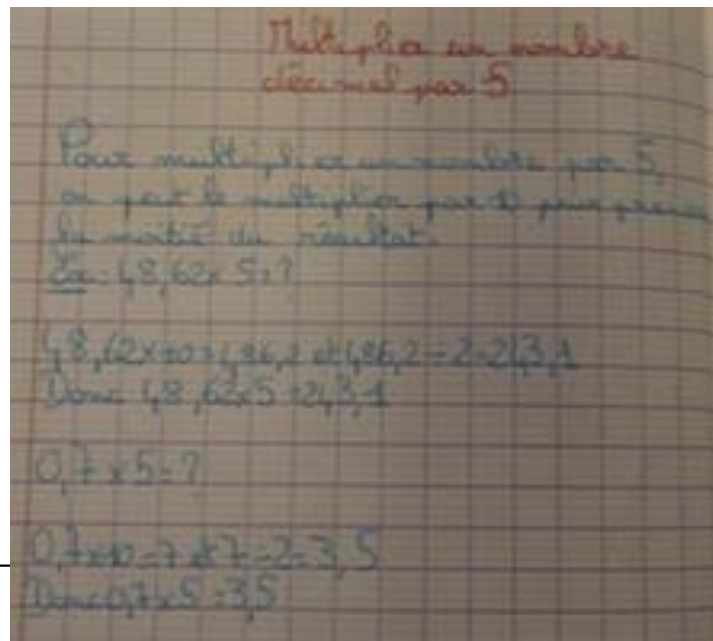 Multiplier un nombre
décimal par 5
Pour multiplier un nombre par 5,
on peut le multiplier par 10 puis prendre
la moitié du résultat.
Ex : 48,62 x 5 = ?
48,62 x 10 = 486,2 et 486,2 ÷ 2 = 243,1
Donc 48,62 x 5 = 243,1
0,7 x 5 = ?
0,7 x 10 = 7 et 7 ÷ 2 = 3,5
Donc 0,7 x 5 = 3,5